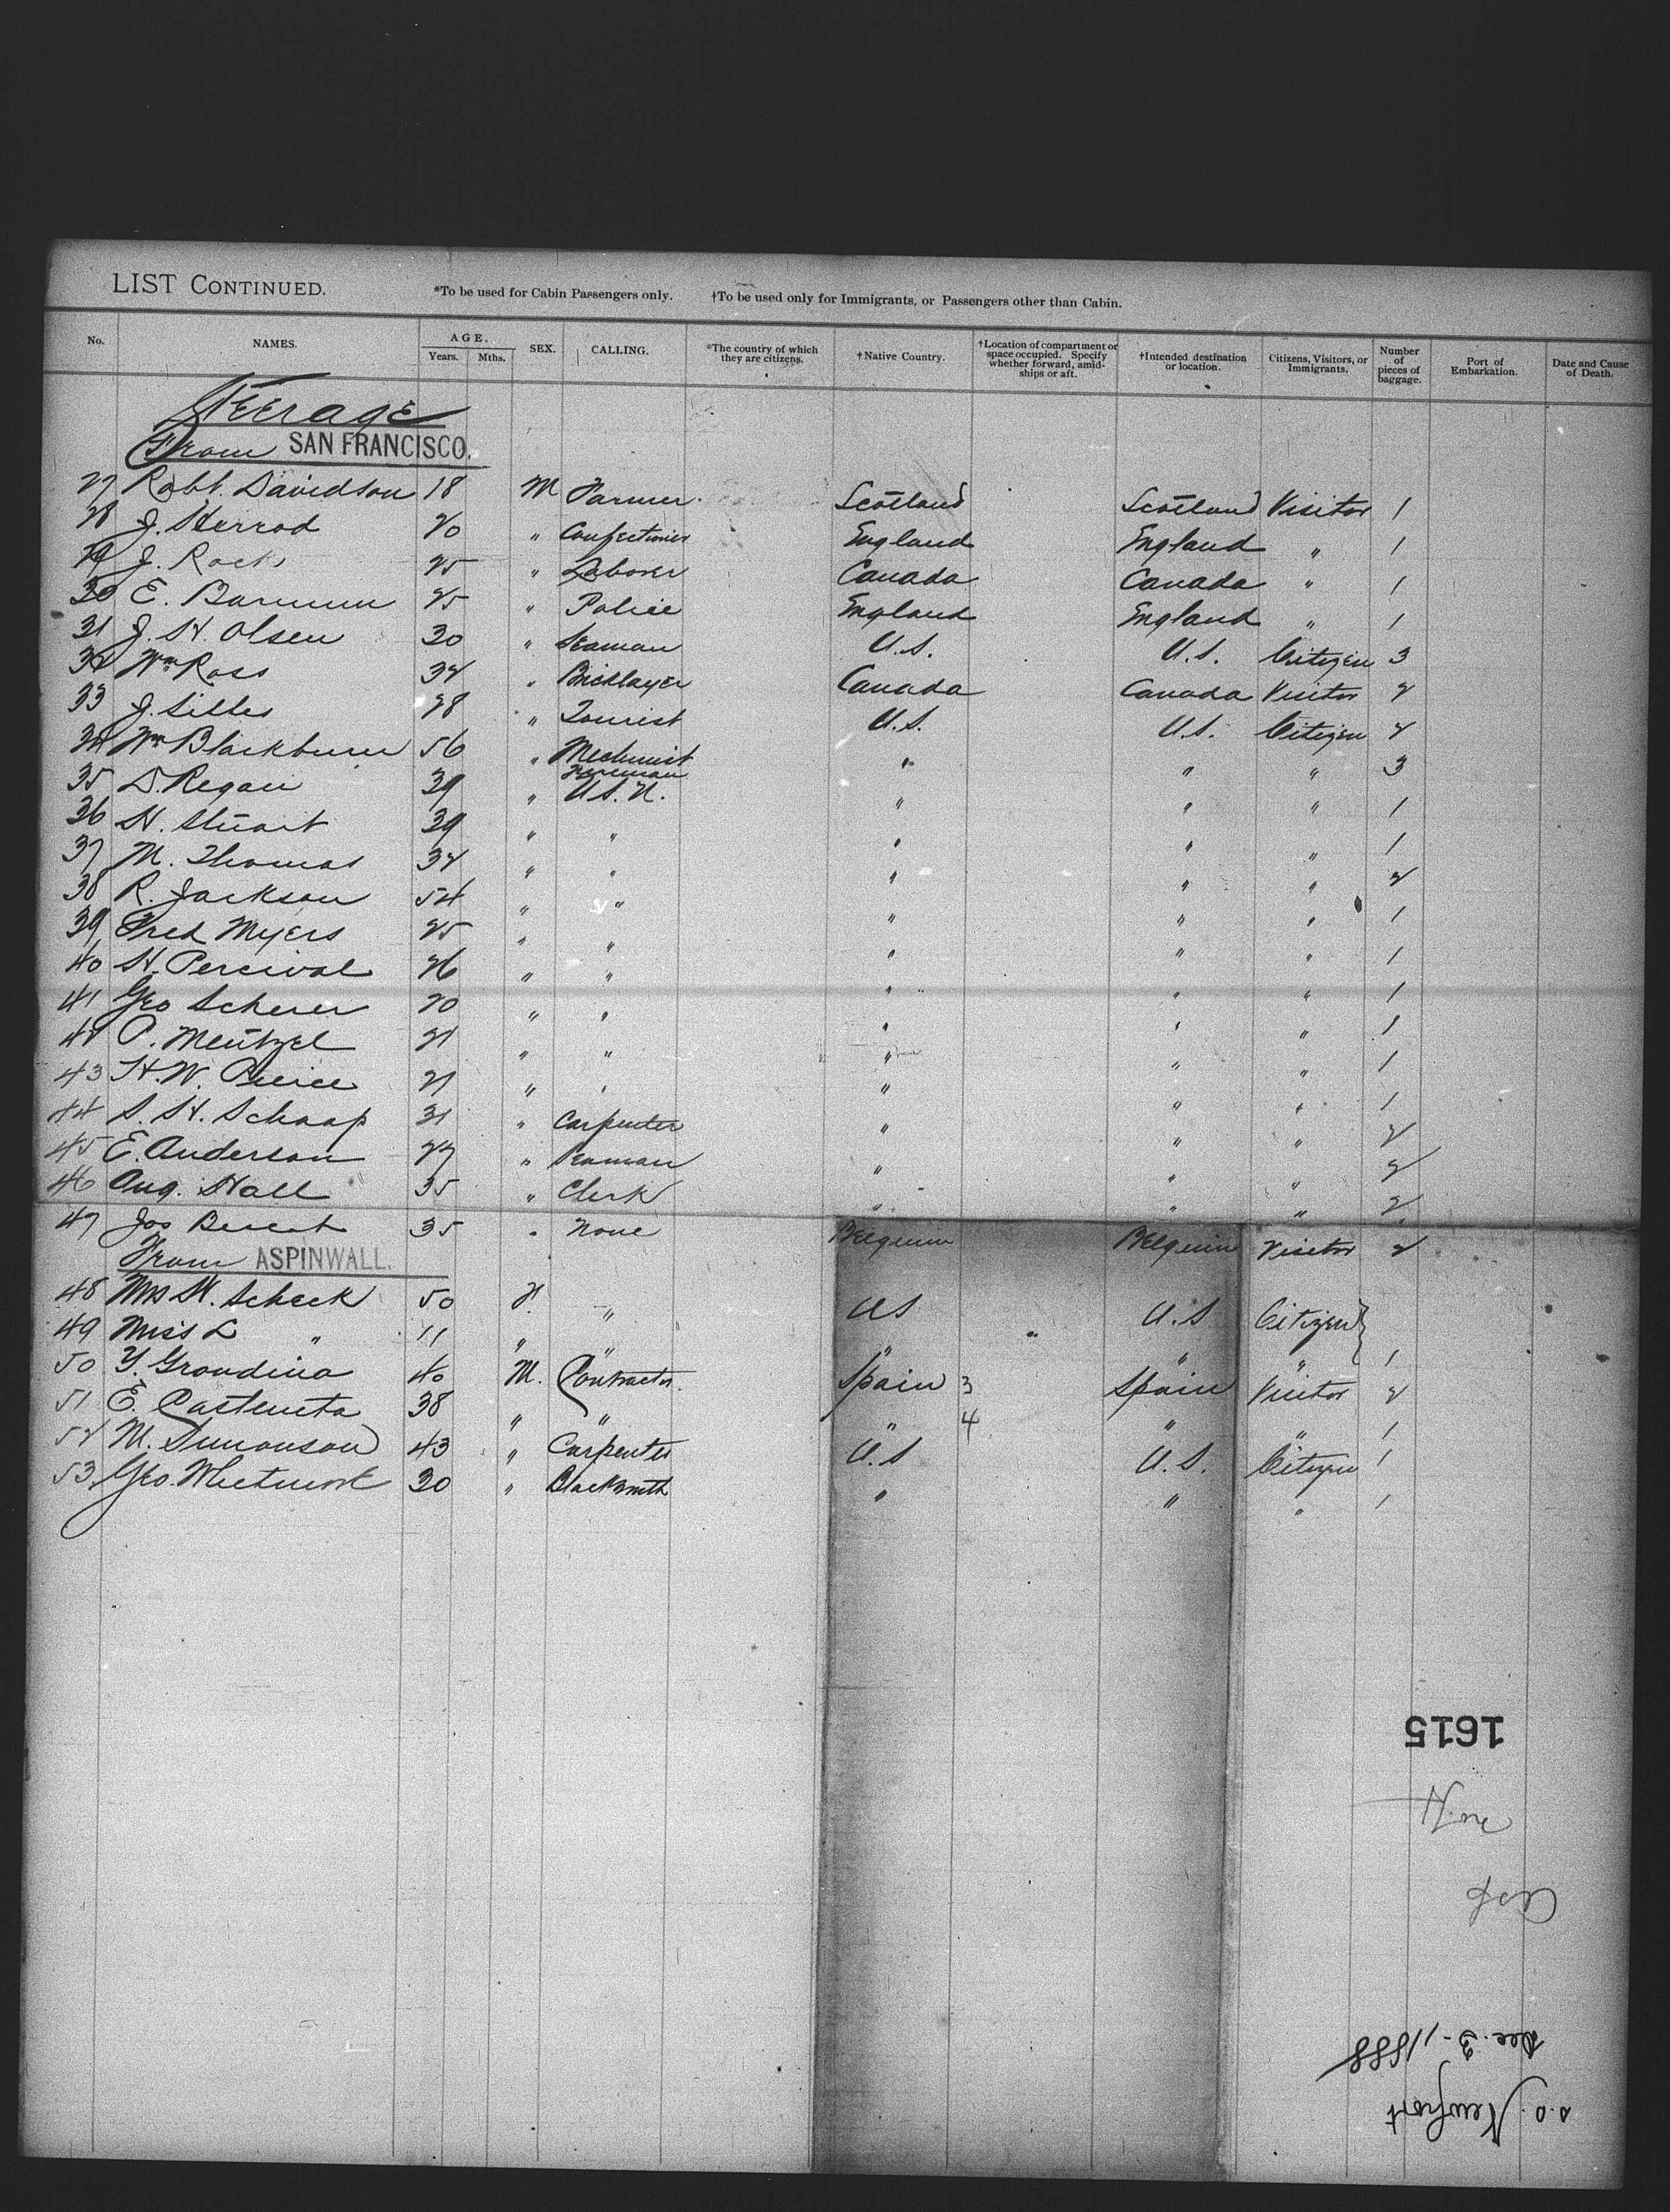 LIST CONTINUED. *To be used for Cabin Passengers only. †To be used only for Immigrants, or Passengers other than Cabin.
No. NAMES. AGE. Years. Mths. SEX. CALLING. *The country of which they are citizens. †Native Country. †Location of compartment or space occupied. Specify whether forward, amidships or aft. †Intended destination or location. Citizens, Visitors, or Immigrants. Number of pieces of baggage. Port of Embarkation. Date and Cause of Death.
Steerage
From SAN FRANCISCO.
27 Robt. Davidson 18 M Farmer Scotland Scotland Visitor 1
28 J. Herrod 20 " Confectioner England England " 1
29 J. Rock 25 " Laborer Canada Canada " 1
30 E. Barmum 25 " Police England England " 1
31 J. H. Olsen 30 " Seaman U.S. U.S. Citizen 3
32 Wm Ross 32 " Bricklayer Canada Canada Visitor 2
33 J. Silles 28 " Tourist U.S. U.S. Citizen 2
34 Wm Blackburn 56 " Mechinist " " " 3
35 D. Regan 39 " Fireman U.S.N. " " " 1
36 H. Stuart 39 " " " " " 1
37 M. Thomas 32 " " " " " 2
38 R. Jackson 54 " " " " " 1
39 Fred Myers 25 " " " " " 1
40 H. Percival 26 " " " " " 1
41 Geo Scherer 20 " " " " " 1
42 P. Mentzel 21 " " " " " 1
43 H. W. Peirce 21 " " " " " 1
44 S. H. Schaap 31 " Carpenter " " " 2
45 E. Anderson 27 " Seaman " " " 2
46 Aug. Hall 35 " Clerk " " " 2
47 Jos 35 " None Belgium Belgium Visitor 2
From ASPINWALL.
48 Mrs H. Scheck 50 F. " US U.S Citizen
49 Miss L " 11 " " " " " 1
50 Y. Grondina 40 M. Contractor. Spain 3 Spain Visitor 2
51 E. Casteneta 38 " " " 4 " " 1
52 M. Simonson 43 " Carpenter U.S U.S. Citizen 1
53 Geo. Whetmore 30 " Blacksmith " " " 1
1615
Asp
Dec. 3 - 1888
S.S. Newport